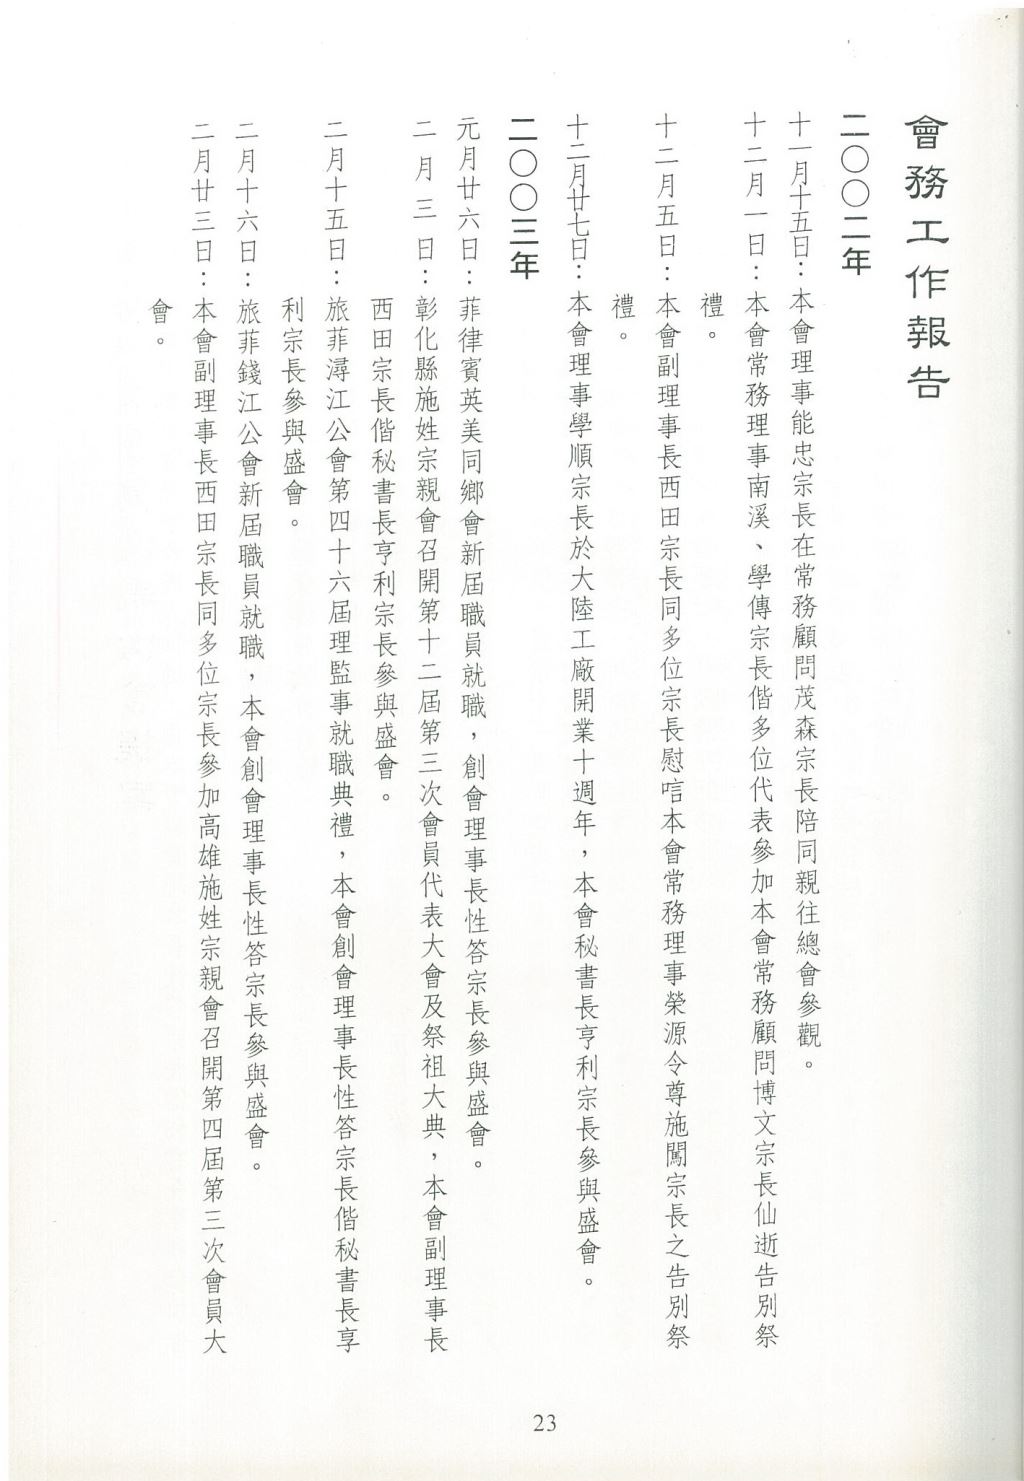 會務工作報告
二〇〇二年
十一月十五日：本會理事能忠宗長在常務顧問茂森宗長陪同親往總會參觀。
十二月一日：本會常務理事南溪、學傳宗長偕多位代表參加本會常務顧問博文宗長仙逝告別祭
禮。
十二月五日：本會副理事長西田宗長同多位宗長慰唁本會常務理事榮源令尊施闖宗長之告別祭
禮。
十二月廿七日：本會理事學順宗長於大陸工廠開業十週年，本會秘書長亨利宗長參與盛會。
二〇〇三年
元月廿六日：菲律賓英美同鄉會新屆職員就職，創會理事長性答宗長參與盛會。
二月三日：彰化縣施姓宗親會召開第十二屆第三次會員代表大會及祭祖大典，本會副理事長
西田宗長偕秘書長亨利宗長參與盛會。
二月十五日：旅菲潯江公會第四十六屆理監事就職典禮，本會創會理事長性答宗長偕秘書長亨
利宗長參與盛會。
二月十六日：旅菲錢江公會新屆職員就職，本會創會理事長性答宗長參與盛會。
二月廿三日：本會副理事長西田宗長同多位宗長參加高雄施姓宗親會召開第四屆第三次會員大
會。
23